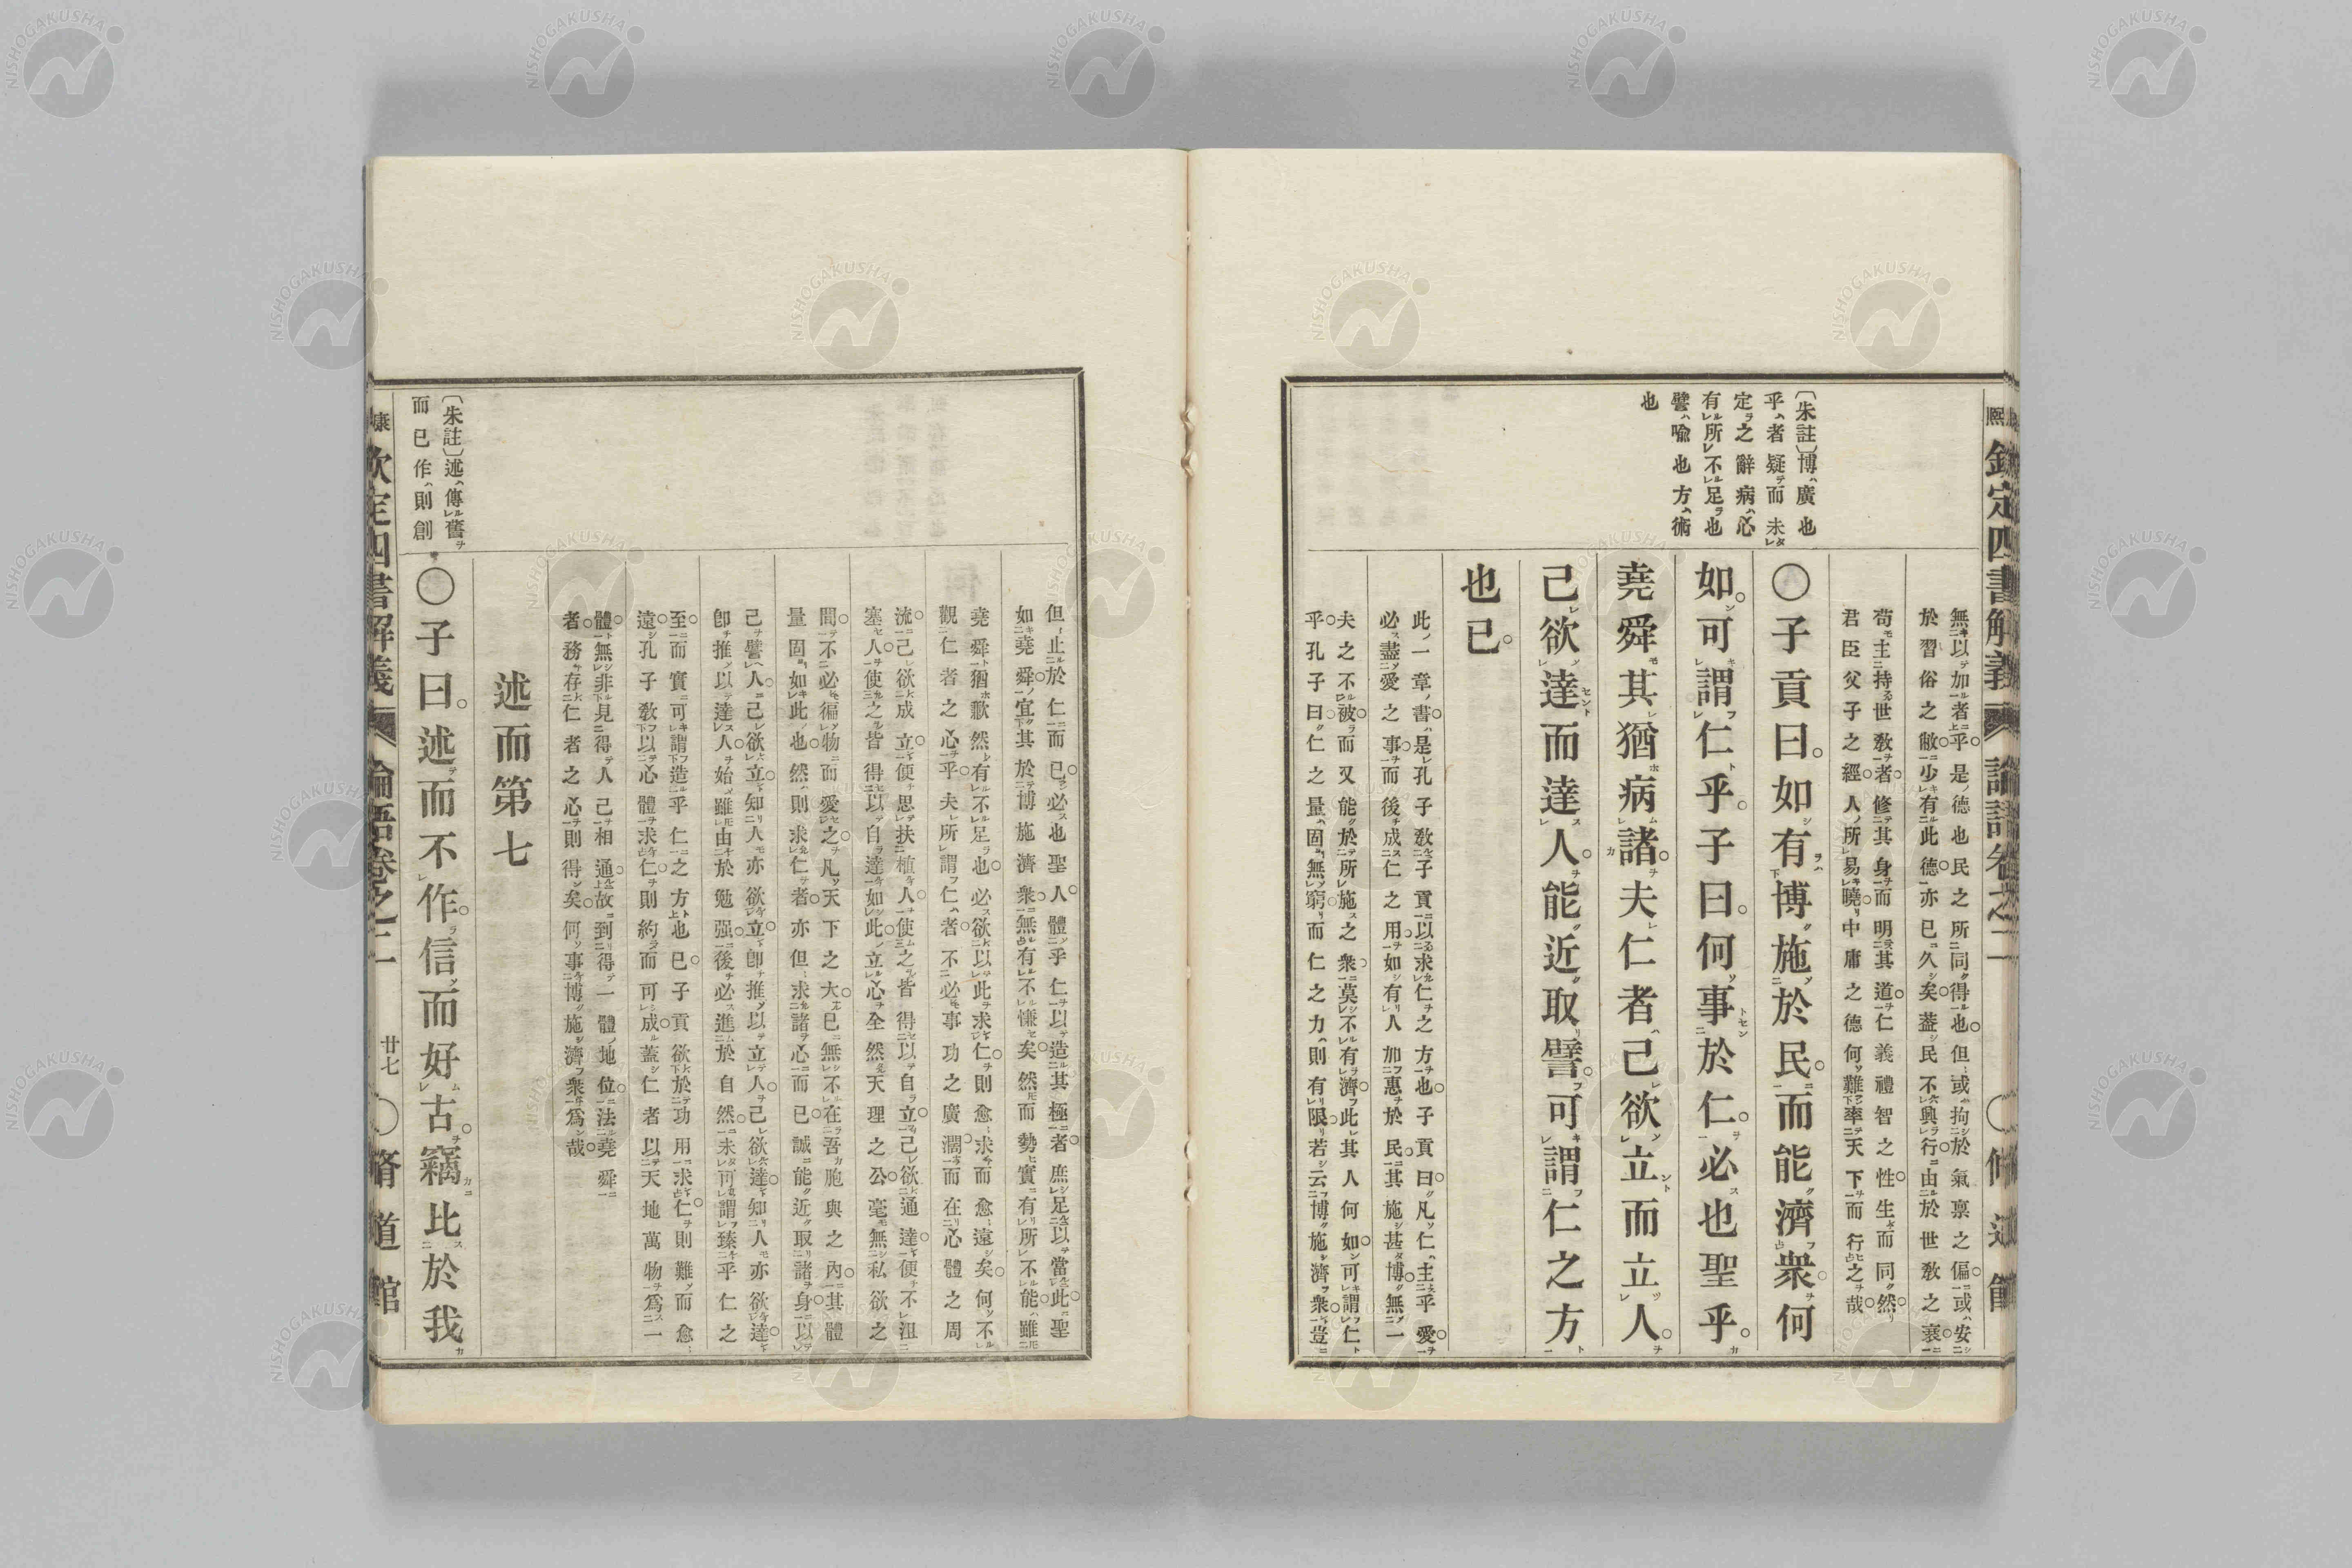 熙 欽定四書解義 論語卷之二 〇脩道館
〔朱註〕博ハ廣也
乎ハ者疑而未
定之辭病ハ心
有所不足也
譬ハ喩也方ハ術
也
無以加者乎。是德也民之所同得也。但或拘於氣稟之偏。或安
於習俗之敝。少有此德。亦已久矣。葢民不興行。由於世敎之衰。
苟主持世敎者。修其身而明其道。仁義禮智之性。生而同然。
君臣父子之經。人所易曉。中庸之德何難率天下而行之哉。
〇子貢曰。如有博施於民。而能濟衆。何
如。可謂仁乎。子曰。何事於仁。必也聖乎。
堯舜其猶病諸。夫仁者己欲立而立人。
己欲達而達人。能近取譬。可謂仁之方
也已。
此一章書。是孔子敎子貢以求仁之方也。子貢曰。凡仁主乎愛。
必盡愛之事。而後成仁之用。如有人加惠於民。其施甚博。無一
夫之不被。而又能於所施之衆。莫不有濟。此其人何如。可謂仁
乎。孔子曰。仁之量固無窮。而仁之力則有限。若云博施濟衆。豈
但止於仁而已。必也聖人。體乎仁以造其極者。庶足以當此。聖
如堯舜。宜其於博施濟衆。無有不慊矣。然而勢實有所不能。雖
堯舜猶歉然有不足也。必欲以此求仁。則愈求而愈遠矣。何不
觀仁者之心乎。夫所謂仁者。不必事功之廣濶。而在心體之周
流。己欲成立。便思扶植人。使之皆得以自立。己欲通達。便不沮
塞人。使之皆得以自達。如此立心。全然天理之公。毫無私欲之
間。不必徧物而愛之。凡天下之大。已無不在吾胞與之內。其體
量固如此也。然則求仁者。亦但求諸心而已。誠能近取諸身。以
己譬人。己欲立。知人亦欲立。卽推以立人。己欲達。知人亦欲達。
卽推以達人。始雖由於勉强。後必進於自然。未可謂臻乎仁之
至。而實可謂造乎仁之方也已。子貢欲於功用求仁。則難而愈
遠。孔子敎以心體求仁。則約而可成。蓋仁者以天地萬物爲一
體。無非見得人己相通。故到得一體地位。法堯舜
者。務存仁者之心。則得矣。何事博施濟衆爲哉。
述而第七
〔朱註〕述ハ傳舊
而已作ハ則創
〇子曰。述而不作。信而好古。竊比於我
康 欽定四書解義 論語卷之二 廿七 〇脩道館